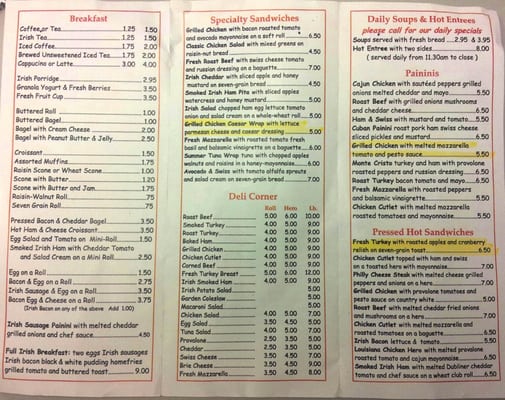 Breakfast
Coffee or Tea 1.25 1.50
Irish Tea 1.25 1.50
Iced Coffee 1.75 2.00
Brewed Unsweetened Iced Tea 1.75 2.00
Cappucino or Latte 3.00 4.00
Irish Porridge 2.95
Granola Yogurt & Fresh Berries 3.50
Fresh Fruit Cup 3.50
Buttered Roll 1.00
Buttered Bagel 1.00
Bagel with Cream Cheese 2.00
Bagel with Peanut Butter & Jelly 2.50
Croissant 1.50
Assorted Muffins 1.75
Raisin Scone or Wheat Scone 1.00
Scone with Butter 1.20
Scone with Butter and Jam 1.75
Raisin-Walnut Roll .75
Seven Grain Roll .75
Pressed Bacon & Cheddar Bagel 3.50
Hot Ham & Cheese Croissant 3.50
Egg Salad and Tomato on Mini-Roll 1.50
Smoked Irish Ham with Cheddar Tomato
and Salad Cream on a Mini Roll 2.50
Egg on a Roll 1.50
Bacon & Egg on a Roll 2.75
Irish Sausage & Egg on a Roll 3.50
Bacon Egg & Cheese on a Roll 3.75
(Irish Bacon on any of the above Add 1.00)
Irish Sausage Painini with melted cheddar
grilled onions and chef sauce 4.50
Full Irish Breakfast: two eggs Irish sausages
Irish bacon black & white pudding homefries
grilled tomato and buttered toast 9.00
Specialty Sandwiches
Grilled Chicken with bacon roasted tomato
and avocado mayonnaise on a soft roll 6.50
Classic Chicken Salad with mixed greens on
raisin-nut bread 4.50
Fresh Roast Beef with swiss cheese tomato
and russian dressing on a baguette 7.00
Irish Cheddar with sliced apple and honey
mustard on seven-grain bread 4.50
Smoked Irish Ham Pita with sliced apples
watercress and honey mustard 5.00
Irish Salad chopped ham egg lettuce tomato
onion and salad cream on a whole-wheat roll 5.00
Grilled Chicken Caesar Wrap with lettuce
parmesan cheese and caesar dressing 5.00
Fresh Mozzarella with roasted tomato fresh
basil and balsamic vinaigrette on a baguette 6.00
Summer Tuna Wrap tuna with chopped apples
walnuts and raisins in a honey-mayonnaise 6.00
Avocado & Swiss with tomato alfalfa sprouts
and salad cream on seven-grain bread 7.00
Deli Corner
Roll Hero Lb.
Roast Beef 5.00 6.00 10.00
Smoked Turkey 4.00 5.00 9.00
Roast Turkey 4.00 5.00 9.00
Baked Ham 4.00 5.00 9.00
Grilled Chicken 4.00 5.00 9.00
Chicken Cutlet 4.00 5.00 9.00
Corned Beef 4.00 5.00 9.00
Fresh Turkey Breast 5.00 6.00 12.00
Irish Smoked Ham 4.00 5.00 9.00
Irish Potato Salad 5.00
Garden Coleslaw 5.00
Macaroni Salad 5.00
Chicken Salad 4.00 5.00 7.00
Egg Salad 3.50 4.50 5.00
Tuna Salad 4.00 5.00 7.00
Provalone 2.50 3.50 5.00
Cheddar 2.50 3.50 5.00
Swiss Cheese 3.50 4.50 7.00
Brie Cheese 3.50 4.50 9.00
Fresh Mozzarella 3.50 4.50 8.00
Daily Soups & Hot Entrees
please call for our daily specials
Soups served with fresh bread 2.95 & 3.95
Hot Entree with two sides 8.00
( served daily from 11.30am to close )
Paininis
Cajun Chicken with sautéed peppers grilled
onions melted cheddar and mayo 5.50
Roast Beef with grilled onions mushrooms
and cheddar cheese 6.50
Ham & Swiss with mustard and tomato 5.50
Cuban Painini roast pork ham swiss cheese
sliced pickles and mustard 6.50
Grilled Chicken with melted mozzarella
tomato and pesto sauce 5.50
Monte Cristo turkey and ham with provalone
roasted peppers and russian dressing 6.50
Roast Turkey bacon tomato and mayo 6.50
Fresh Mozzarella with roasted peppers
and balsamic vinnigrette 5.50
Chicken Cutlet with melted mozzarella
roasted tomatoes and mayonnaise 5.50
Pressed Hot Sandwiches
Fresh Turkey with roasted apples and cranberry
relish on seven-grain toast 6.50
Chicken Cutlet topped with ham and swiss
on a toasted hero with mayonnaise 7.00
Philly Cheese Steak with melted cheese grilled
peppers and onions on a hero 7.00
Grilled Chicken with provalone tomatoes and
pesto sauce on country white 5.00
Roast Beef with melted cheddar fried onions
and mushrooms on a hero 7.00
Chicken Cutlet with melted mozzarella and
roasted tomatoes on a baguette 6.50
Irish Bacon lettuce & tomato 5.50
Louisiana Chicken Hero with melted provalone
roasted tomato and cajun mayonnaise 6.50
Smoked Irish Ham with melted Dubliner cheddar
tomato and chef sauce on a wheat club roll 6.50